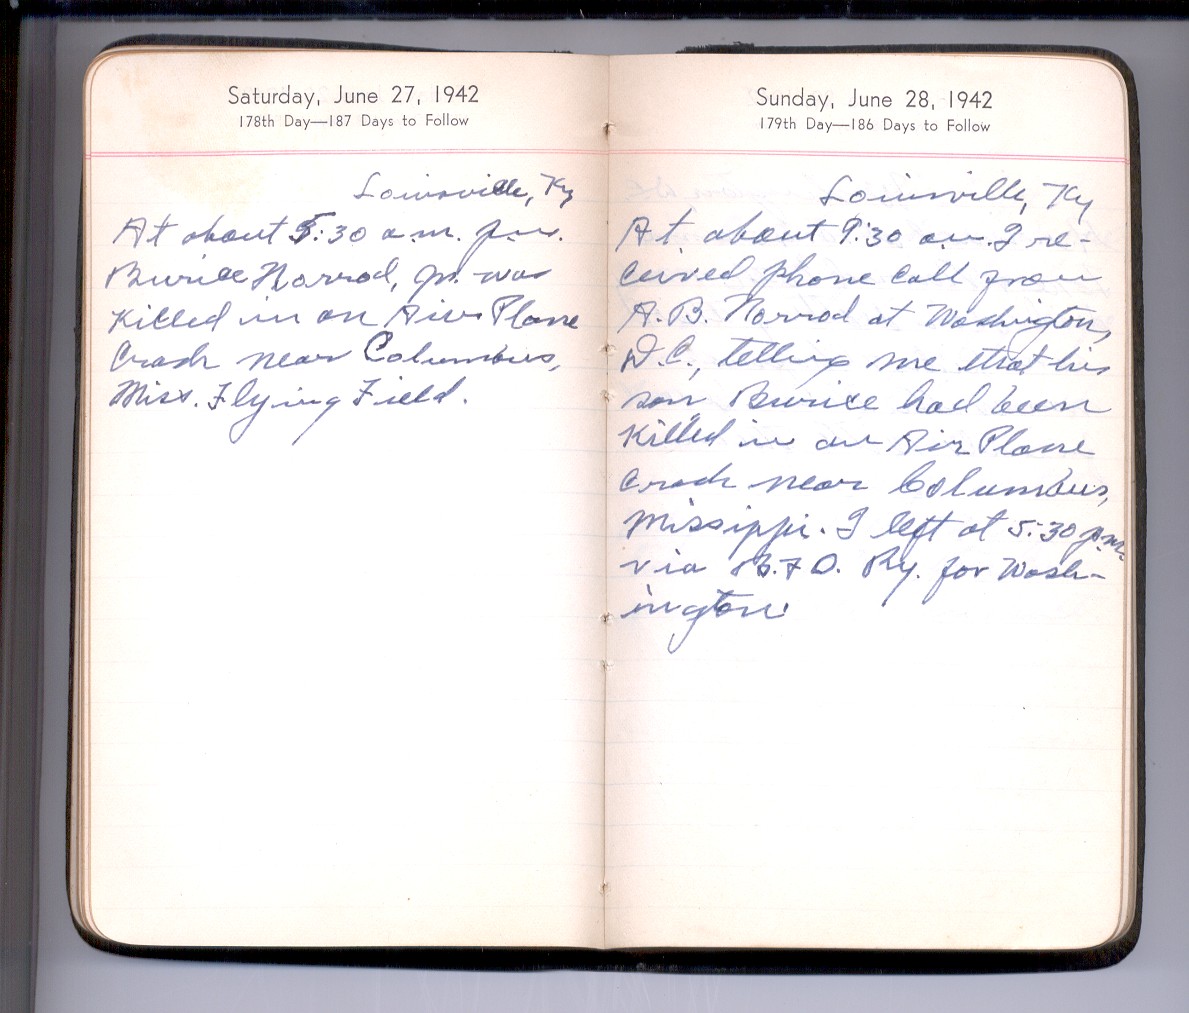 Saturday, June 27, 1942
178th Day—187 Days to Follow
Louisville, Ky
At about 5:30 a.m. p.m.
Burice Norrod, Jr. was
Killed in an Air Plane
Crash near Columbus,
Miss. Flying Field.
Sunday, June 28, 1942
179th Day—186 Days to Follow
Louisville, Ky
At about 9:30 a.m. I re-
ceived phone call from
A.B. Norrod at Washington,
D.C., telling me that his
son Burice had been
Killed in an Air Plane
Crash near Columbus,
Missippi. I left at 5:30 p.m.
via B.&O. Ry. for Wash-
ington